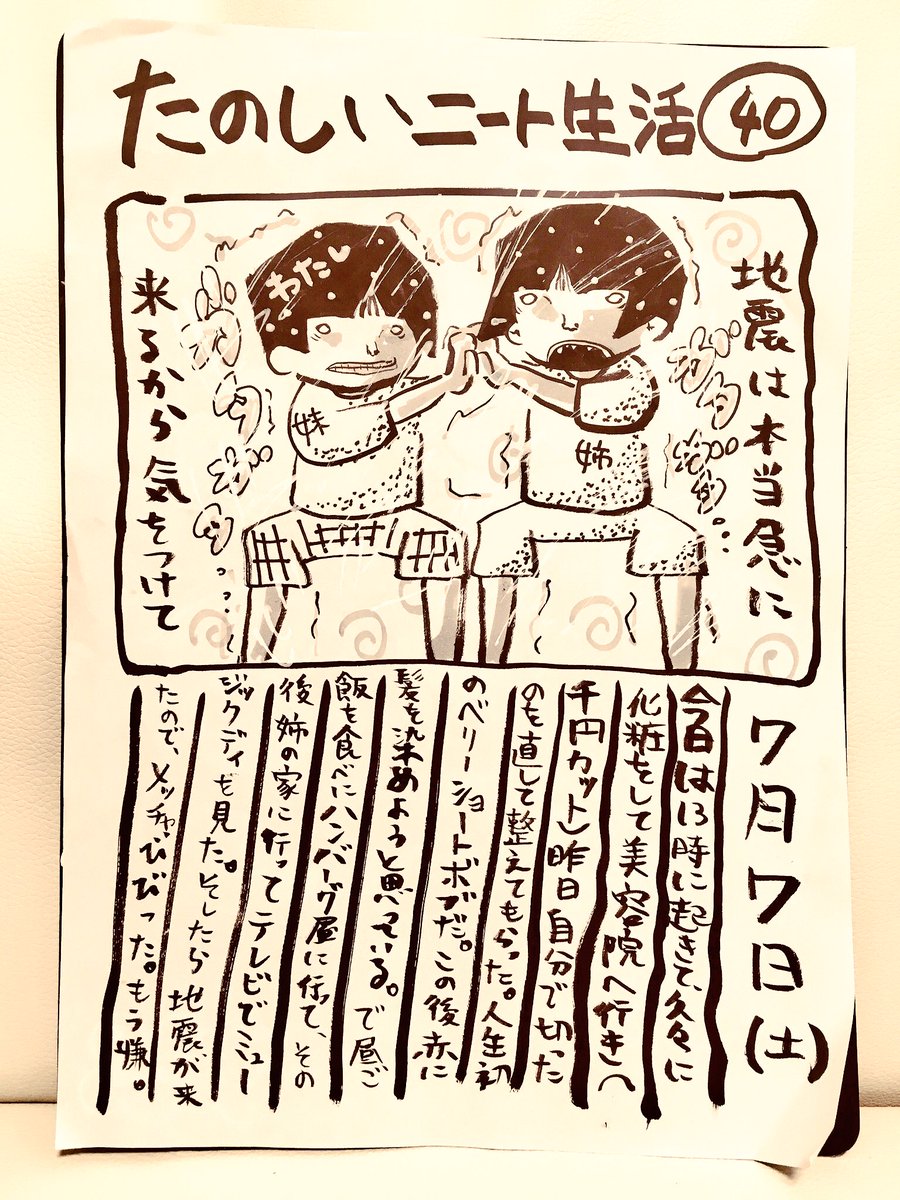 たのしいニート生活 40
地震は本当急に
来るから気をつけて
わたし
妹
姉
7月7日(土)
今日は13時に起きて、久々に
化粧をして美容院へ行き(
千円カット)昨日自分で切った
のを直して整えてもらった。人生初
のベリーショートボブだ。この後赤に
髪を染めようと思っている。で昼ご
飯を食べにハンバーグ屋に行って、その
後姉の家に行ってテレビでミュー
ジックディを見た。そしたら地震が来
たので、メッチャびびった。もう嫌。